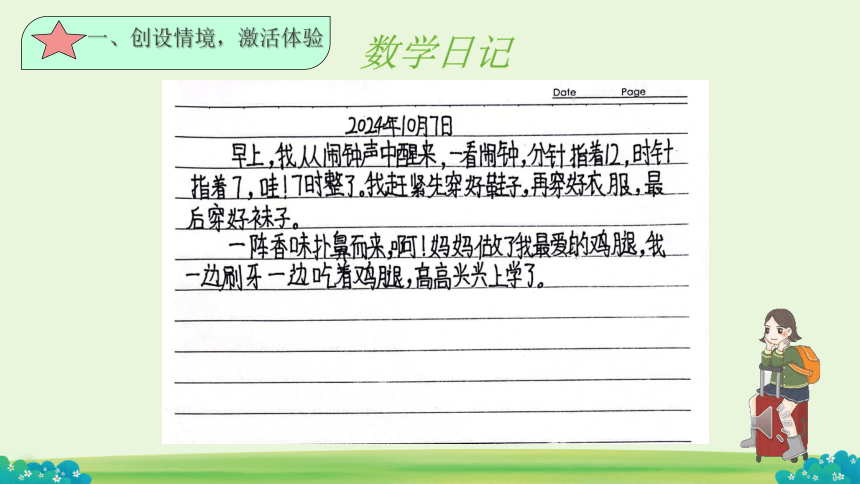 一、创设情境，激活体验
数学日记
Date Page
2024年10月7日
早上，我从闹钟声中醒来，一看闹钟，分针指着12，时针
指着7，哇！7时整了。我赶紧先穿好鞋子，再穿好衣服，最
后穿好袜子。
一阵香味扑鼻而来，啊！妈妈做了我最爱的鸡腿，我
一边刷牙一边吃着鸡腿，高高兴兴上学了。